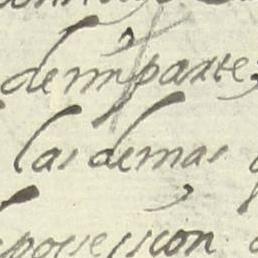 de mi parte,
las demas
possession